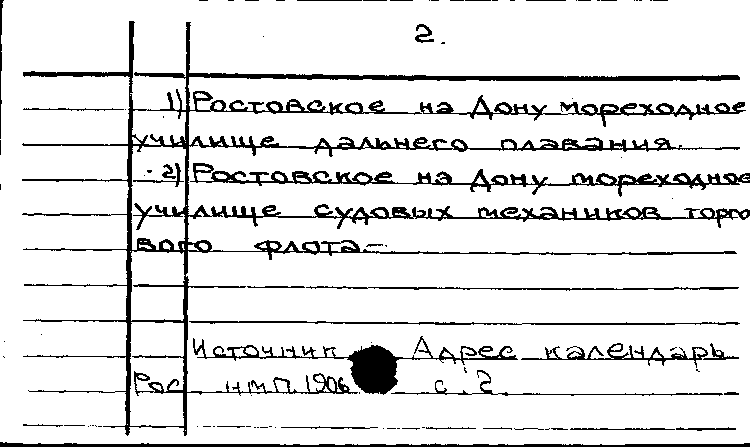 2.
1) Ростовское на Дону мореходное
училище дальнего плавания.
2) Ростовское на Дону мореходное
училище судовых механиков торго
вого флота-
Источник Адрес календарь
Рос имп. 1906 с. 2.